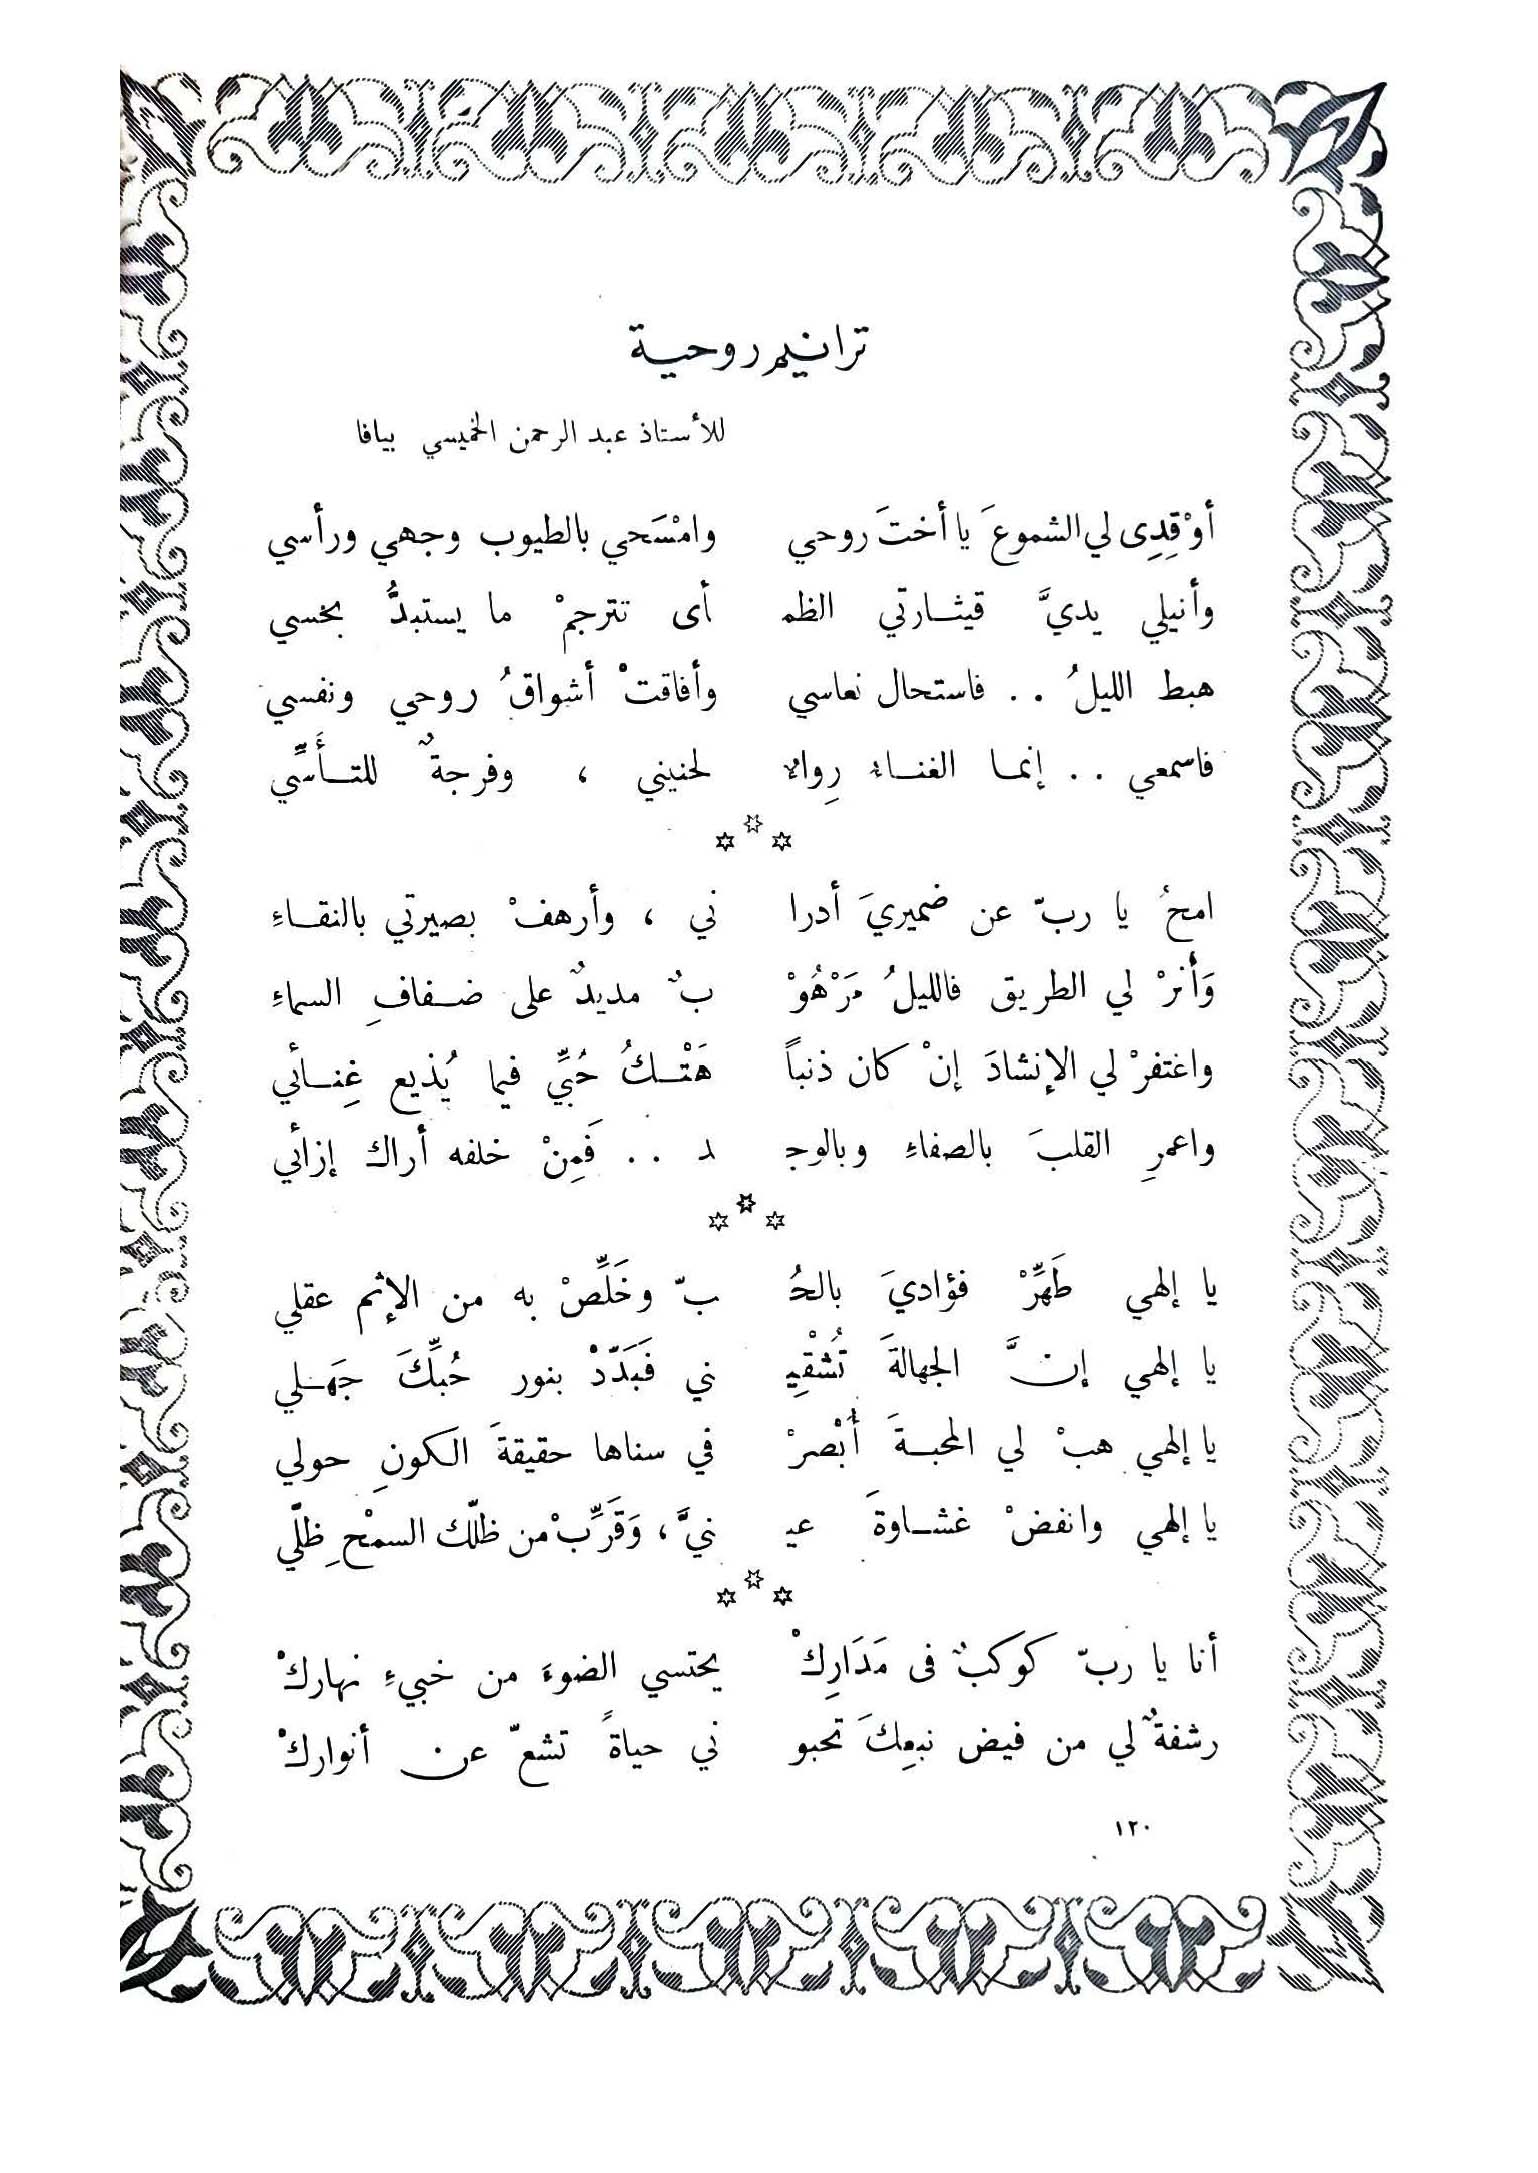 ترانيم روحية
للأستاذ عبد الرحمن الخميسي بيافا
أوْقِدِى لي الشموعَ يا أختَ روحي وامْسَحي بالطيوب وجهي ورأسي
وأنيلي يديَّ قيثـارتي الظمـ أى تترجمْ ما يستبدُّ بخسي
هبط الليلُ .. فاستحال نعاسي وأفاقتْ أشواقُ روحي ونفسي
فاسمعي .. إنمـا الغنـاء رِوالا لحنيني ، وفرجةٌ للتـأَسِّي
***
امحُ يا ربّ عن ضميريَ أدرا ني ، وأرهفْ بصيرتي بالنقـاءِ
وَأَنرْ لي الطريق فالليلُ مَرْهُوْ بٌ مديدٌ على ضـفافِ السماءِ
واغتفرْ لي الإنشادَ إنْ كان ذنباً هَتْـكُ حُبِّي فيما يُذيع غِنـائي
واعمرِ القلبَ بالصفاءِ وبالوجـ ـد .. فَمِنْ خلفه أراك إزائي
***
يا إلهي طَهِّرْ فؤاديَ بالحُـ ـبّ وخَلِّصْ به من الإثم عقلي
يا إلهي إنَّ الجهالةَ تُشْقِيـ ني فَبَدّدْ بنور حُبِّكَ جَهـلي
يا إلهي هبْ لي المحبـةَ أُبْصرْ في سناها حقيقةَ الكونِ حولي
يا إلهي وانفضْ غشـاوةَ عيـ نيَّ ، وَقَرِّبْ من ظلّك السمْحِ ظلّي
***
أنا يا ربّ كوكبٌ فى مَدَارِكْ يحتسي الضوءَ من خبيءِ نهاركْ
رشفةٌ لي من فيض نبعِكَ تحبو ني حياةً تشعّ عن أنواركْ
١٢٠